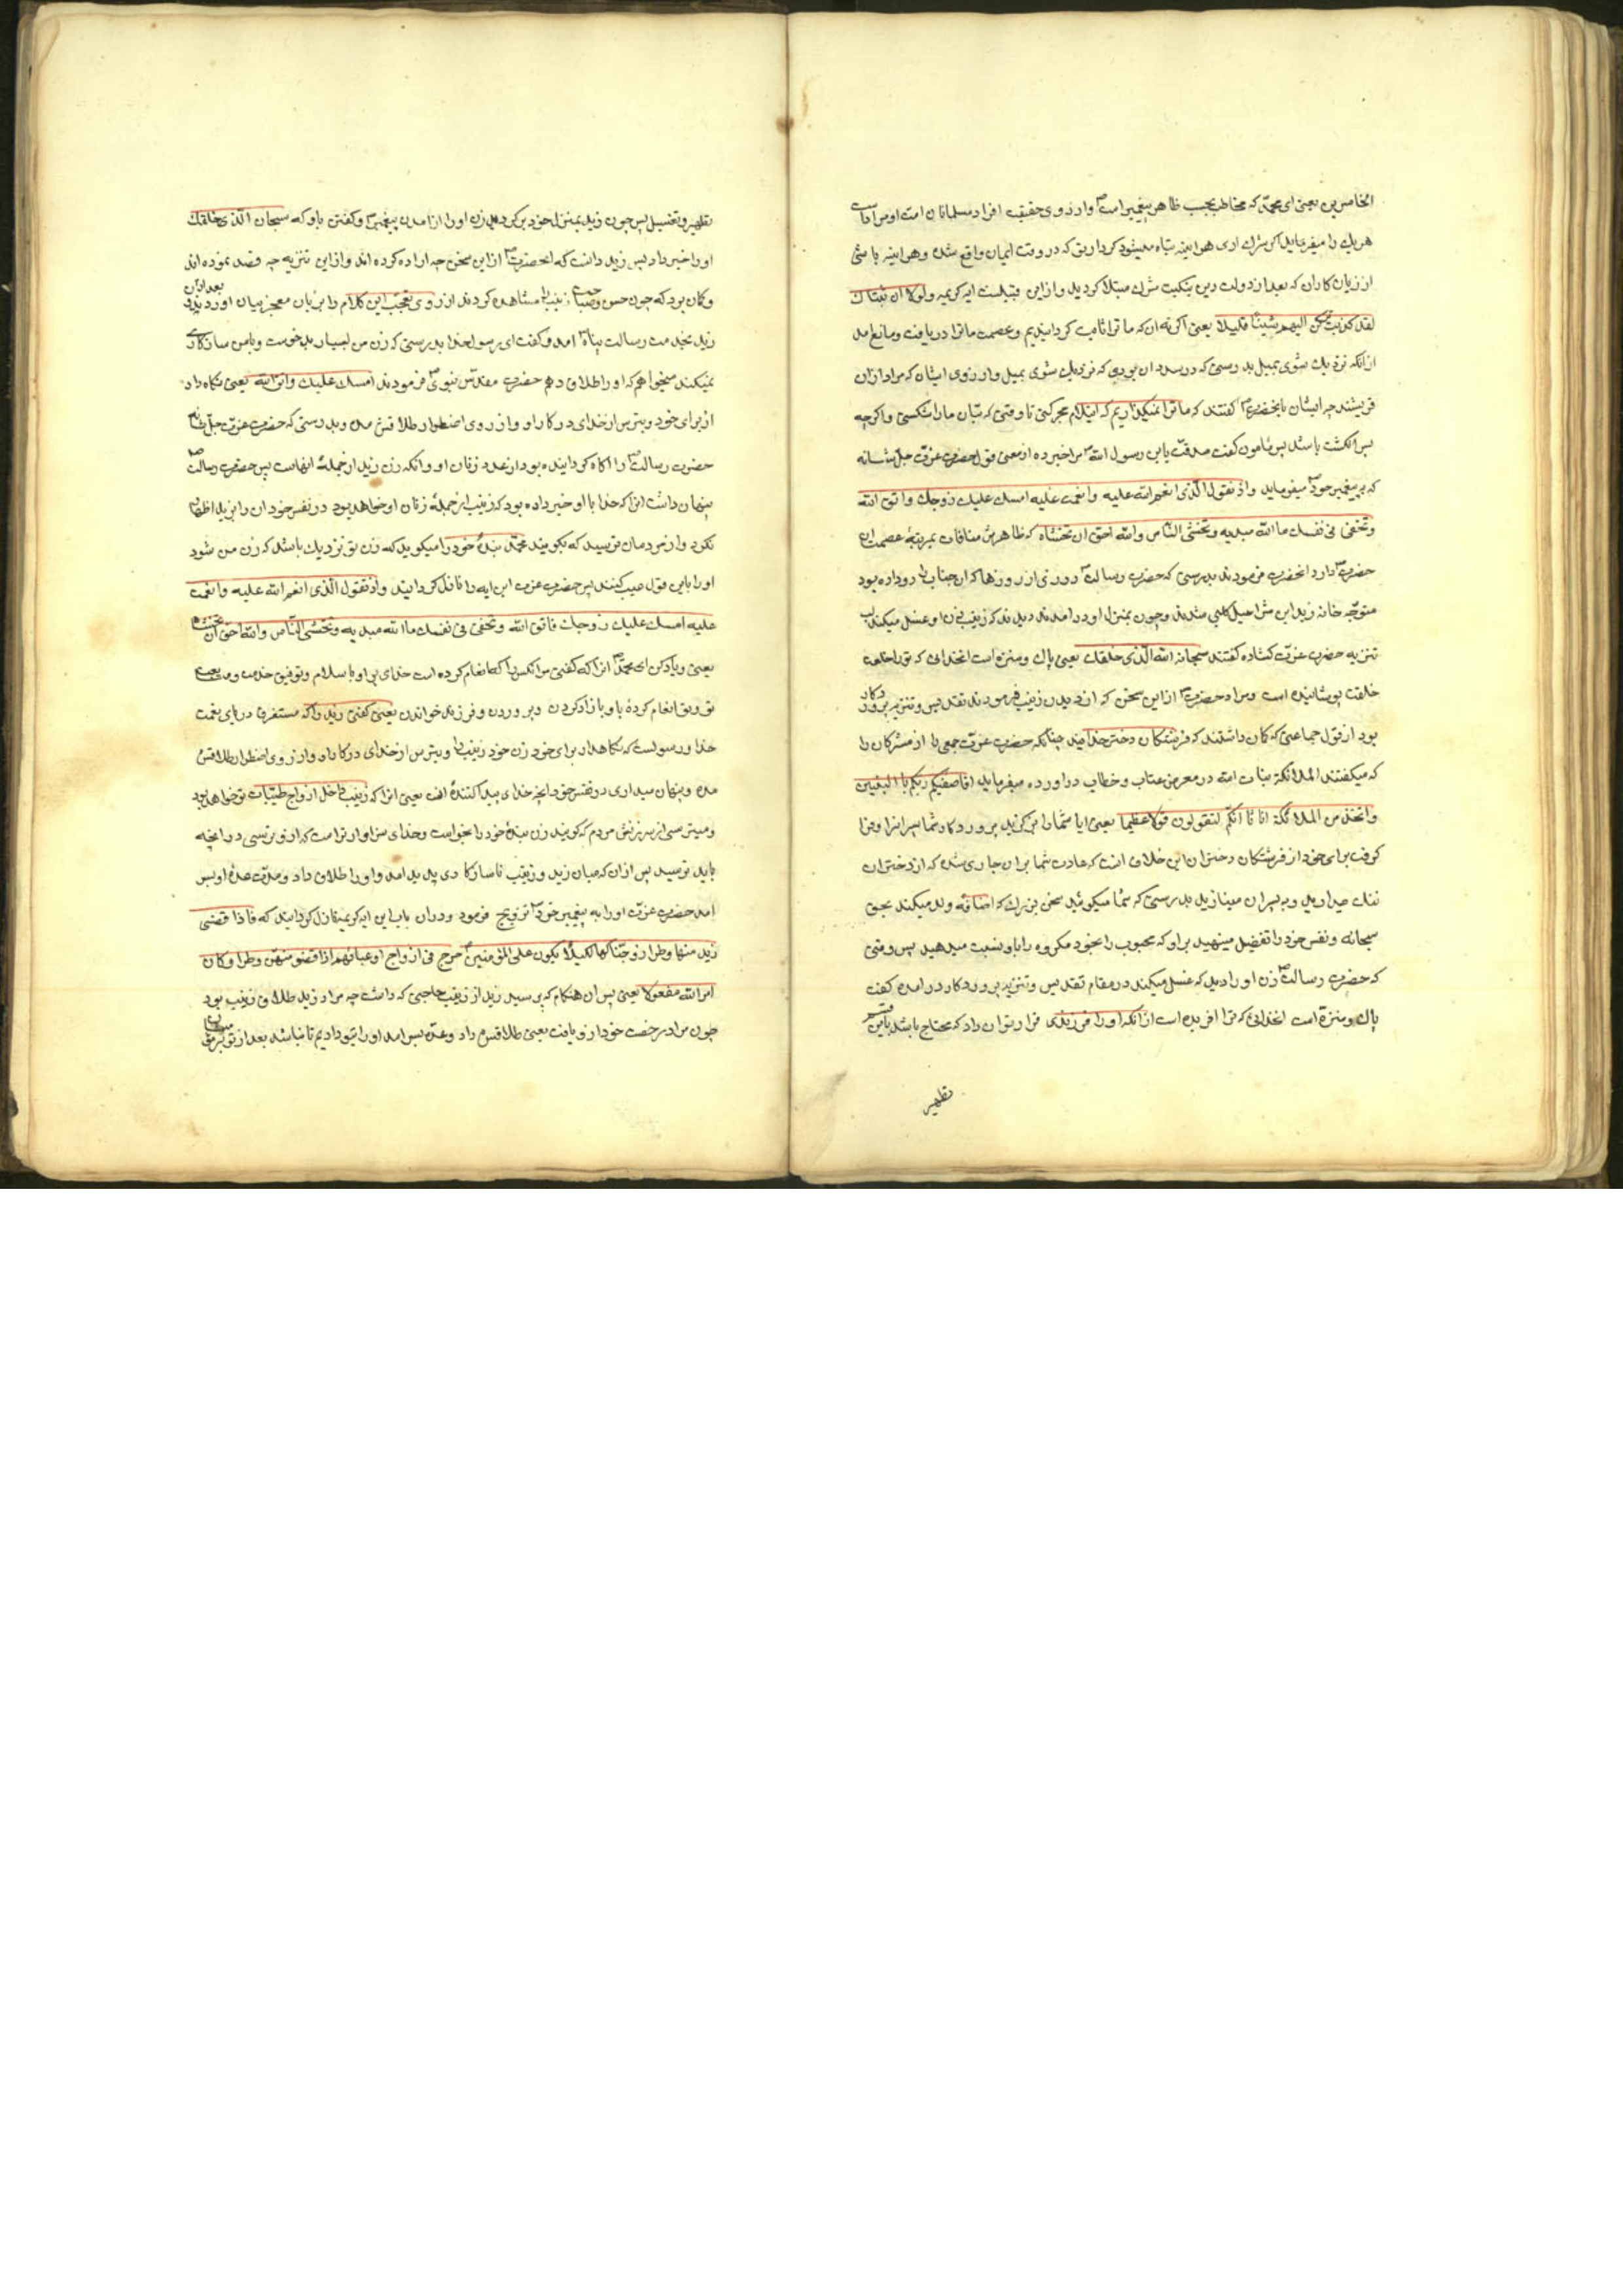 الخاسرین یعنی ای محمّد که مخاطب بحسب ظاهر پیغمبر است و از روی حقیقت افراد مسلمانان امت او مراد است
هریک را میفرماید اکر شرك اری هراینه تباه میشود کرداریق که در وقت ایمان واقع شده و هراینه باشی
از زیان کاران که بعد از دولت دین بنکبت شرك مبتلا کردید و از این قبیلست ایه کریمه ولولا ان ثبتناك
لقد کدت ترکن الیهم شیئا قلیلا یعنی اکر نه ان که ما ترا ثابت کردانیدیم و عصمت ما ترا دریافت و مانع امد
از انکه نزدیك شوی تمیل بدرستی که در صدد ان بودی که نزدیك شوی بمیل و از روی ایشان که مراد از ان
قریشند چه ایشان بانحضرت کفتند که ما ترا نمیکذاریم که استلام حجر کنی تا وقتی که بتان ما را شکسی و اکرچه
بسر انکشت باشد پس مامون کفت صدقت یابن رسول الله مرا خبر ده از معنی قول حضرت عزّت جلّ شانه
که بر پیغمبر خود میفرماید واذ تقول الّذی انعم الله علیه وانعمت علیه امسك علیك زوجك واتق الله
وتخفی فی نفسك ما الله مبدیه وتخشی النّاس والله احقّ ان تخشاه که ظاهرش منافات بمرتبهٔ عصمت ان
حضرت دارد انحضرت فرمودند بدرستی که حضرت رسالت روزی از روزها که ان جناب را رو داده بود
متوجّه خانه زید ابن شراحیل کلبی شدند و چون بمنزل او درامدند دیدند که زینب زن او غسل میکند لب
تنزیه حضرت عزّت کشاده کفتند سبحان الله الّذی خلقك یعنی پاك و منزه است انخدائی که تو را خلعت
خلقت پوشانیده است و مراد حضرت از این سخن که از دیدن زینب فرمودند تقدیس و تنزیه پروردکار
بود از قول جماعتی که کان داشتند که فرشتکان دختر خدایند چنانکه حضرت عزّت جمعی را از مشرکان را
که میکفتند الملائکة بنات الله در معرض عتاب و خطاب دراورده میفرماید افاصفیکم ربکم بالبنین
واتخذ من الملائکة اناثا انکم لتقولون قولا عظیما یعنی ایا شما را برکزید پروردکار شما بپسرانرا و فرا
کرفت برای خود از فرشتکان دختران این خلاف انست که عادت شما بران جاری شده که از دختران
ننك میدارید و به پسران مینازید بدرستی که شما میکوئید سخن بزرك که اضافه ولد میکنند بحق
سبحانه و نفس خود را تفضیل مینهید براو که محبوب را بخود مکروه را باو نسبت میدهید پس وقتی
که حضرت رسالت زن او را دید که غسل میکند در مقام تقدیس و تنزیه پروردکار درامده کفت
پاك و منزه است انخدائی که ترا افریده است از انکه او را فرزندی فرا بتوان داد که محتاج باشد باین
تطهیر
تطهیر و تغسیل پس چون زید بمنزل خود برکردید زن او را از امدن پیغمبر و کفتن باو که سبحان الّذی خلقك
او را خبر داد پس زید دانست که انحضرت از این سخن چه اراده کرده اند و از این تنزیه چه قصد نموده اند
و کان برد که چون حسن زینب را مشاهده کردند از روی تعجّب این کلام را بزبان معجز بیان اوردند بعد از ان
زید بخدمت رسالت پناه امد و کفت ای رسول خدا بدرستی که زن من بسیار بدخوست و بامن سازکاری
نمیکند میخواهم که او را طلاق دهم حضرت مقدّس نبوی فرمودند امسك علیك واتق الله یعنی نکاه دار
از برای خود و بترس از خدای در کار او و از روی اضطرار طلاقش مده و بدرستی که حضرت عزّت جلّ شانه
حضرت رسالت را اکاه کردانیده بود از عدد زنان او و انکه زن زید از جملهٔ انهاست پس حضرت رسالت
پنهان داشت انرا که خدا با او خبر داده بود که زینب از جملهٔ زنان او خواهد بود در نفس خود ان را بزید اظهار
نکرد و از مردمان ترسید که بکویند محمّد بندهٔ خود را میکوید که زن تو نزدیك باشد که زن من شود
او را باین قول عیب کنند پس حضرت عزت این ایه را نازل کردانید واذ تقول الّذی انعم الله علیه وانعمت
علیه امسك علیك زوجك فاتق الله وتخفی فی نفسك ما الله مبدیه وتخشی النّاس والله احقّ ان تخشاه
یعنی و یاد کن ای محمّد انرا که کفتی مر انکس را که انعام کرده است خدای براو باسلام و توفیق خدمت و
تو و تو انعام کردهٔ باو بازاد کردن و پروردن و فرزند خواندن یعنی کفتی زید را که مستغرق دریای نعمت
خدا و رسولست که نکاهدار برای خود زن خود زینب را و بترس از خدای در کار او و از روی اضطرار طلاقش
مده و پنهان میداری در نفس خود انچه خدای پیدا کنندهٔ انست یعنی انرا که زینب داخل ازواج طیّبات تو خواهد بود
و میترسی از سرزنش مردم که کویند زن بندهٔ خود را بخواست و خدای سزاوارتر است که از و ترسی در انچه
باید ترسید پس از ان که میان زید و زینب ناسازکاری پدید امد و او را طلاق داد و مدّت عدهٔ او بسر
امد حضرت عزّت او را به پیغمبر خود تزویج فرمود و در ان باب این ایه کریمه نازل کردانید که فاذا قضی
زید منها وطرا زوجناکها لکیلا یکون علی المؤمنین حرج فی ازواج ادعیائهم اذا قضو منهن وطرا وکان
امر الله مفعولا یعنی پس ان هنکام که برسید زید از زینب حاجتی که داشت چه مراد زید طلاق زینب بود
چون مراد برحسب خود از و یافت یعنی طلاقش داد و عدّه بسر امد او را بتو دادیم تا نباشد بعد از تو بر مؤمنان